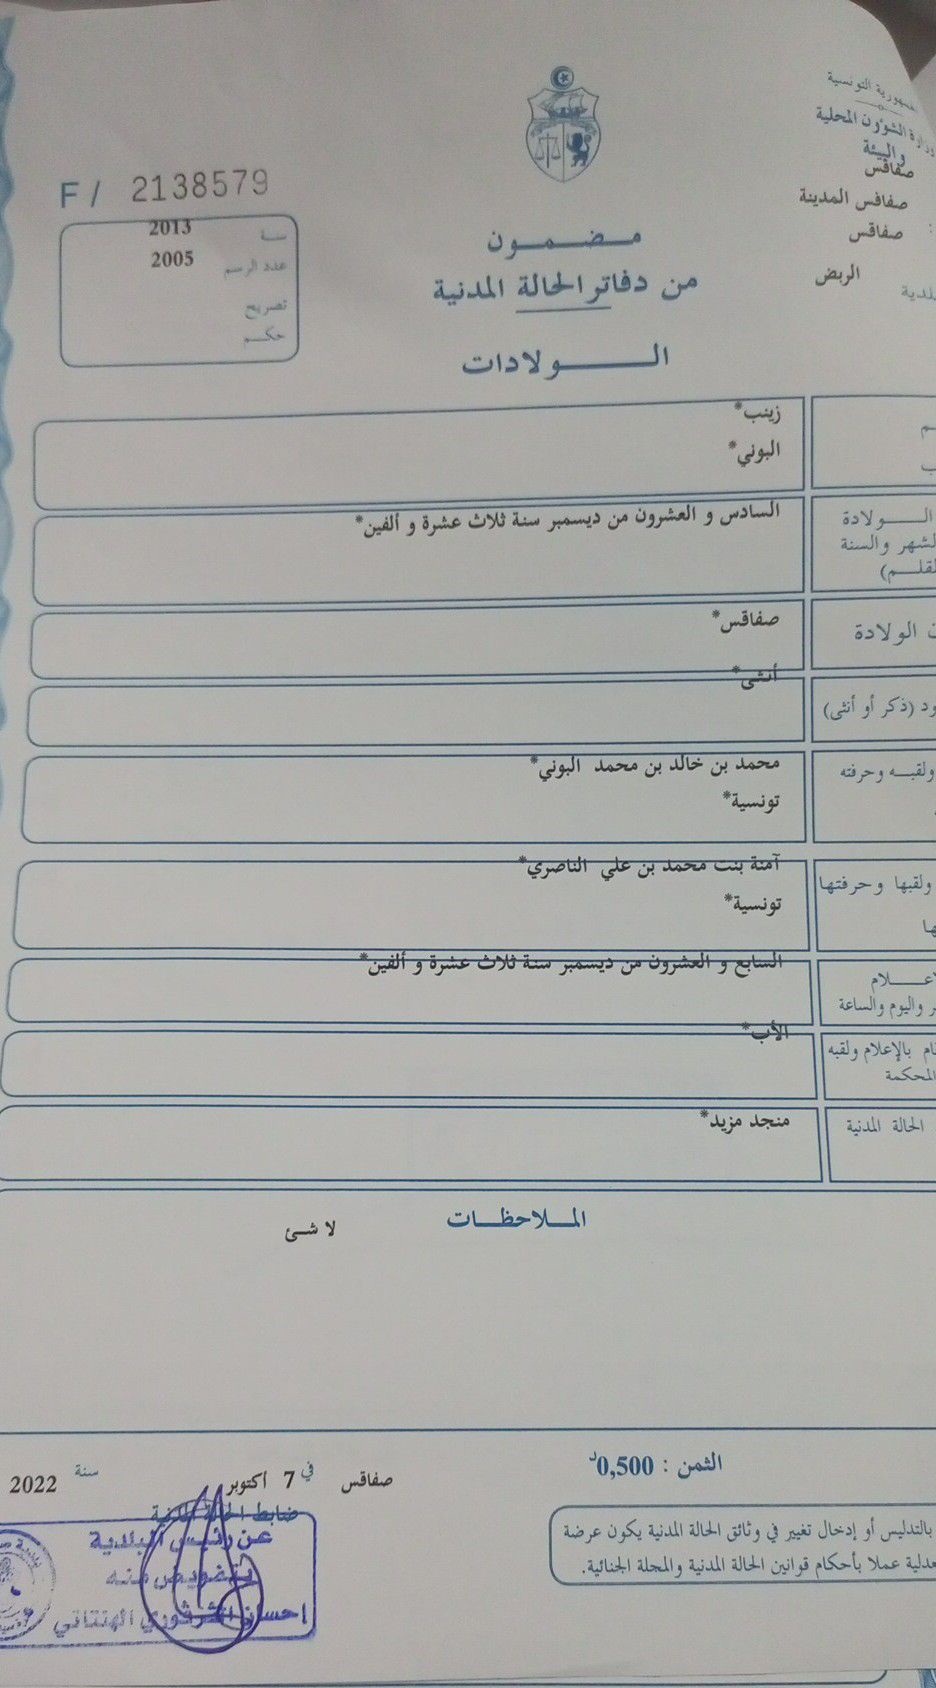 الجمهورية التونسية
وزارة الشؤون المحلية
والبيئة
صفاقس
صفاقس المدينة
صفاقس
الربض
F / 2138579
سنة 2013
عدد الرسم 2005
تصريح
حكم
مضمون
من دفاتر الحالة المدنية
الولادات
زينب*
البوني*
الولادة
السادس و العشرون من ديسمبر سنة ثلاث عشرة و ألفين*
الشهر والسنة
الولادة
صفاقس*
(ذكر أو أنثى)
أنثى*
ولقبه وحرفته
محمد بن خالد بن محمد البوني*
تونسية*
ولقبها وحرفتها
آمنة بنت محمد بن علي الناصري*
تونسية*
السابع و العشرون من ديسمبر سنة ثلاث عشرة و ألفين*
واليوم والساعة
بالإعلام ولقبه
الأب*
المحكمة
الحالة المدنية
منجد مزيد*
الملاحظات
لا شئ
الثمن : 0,500د
صفاقس في 7 أكتوبر سنة 2022
ضابط الحالة المدنية
عن رئيس البلدية
بتفويض منه
إحسان الهنتاتي
بالتدليس أو إدخال تغيير في وثائق الحالة المدنية يكون عرضة
عملا بأحكام قوانين الحالة المدنية والمجلة الجنائية.